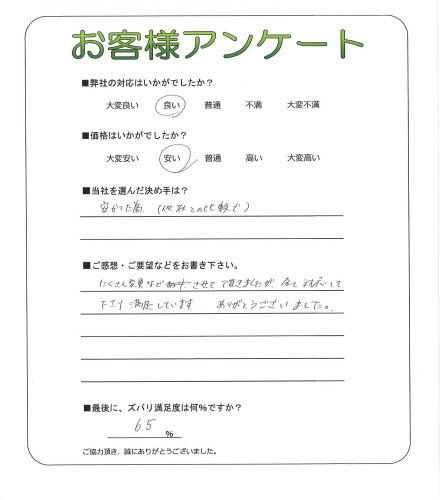 お客様アンケート
■弊社の対応はいかがでしたか？
大変良い 良い 普通 不満 大変不満
■価格はいかがでしたか？
大変安い 安い 普通 高い 大変高い
■当社を選んだ決め手は？
安かった為。(他社との比較で)
■ご感想・ご要望などをお書き下さい。
たくさん など させて頂きましたが、全て対応して
下さり満足しています ありがとうございました。
■最後に、ズバリ満足度は何%ですか？
65 %
ご協力頂き、誠にありがとうございました。